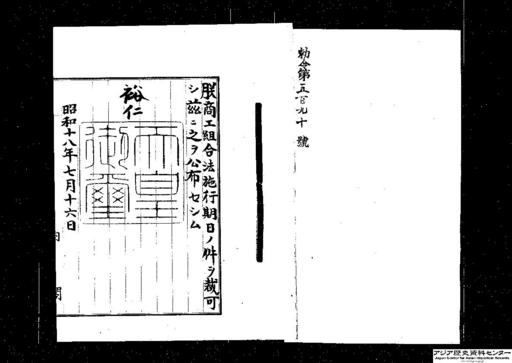 勅令第五百九十號
朕商工組合法施行期日ノ件ヲ裁可
シ茲ニ之ヲ公布セシム
裕仁
天皇御璽
昭和十八年七月十六日
内閣
アジア歴史資料センター
Japan Center for Asian Historical Records